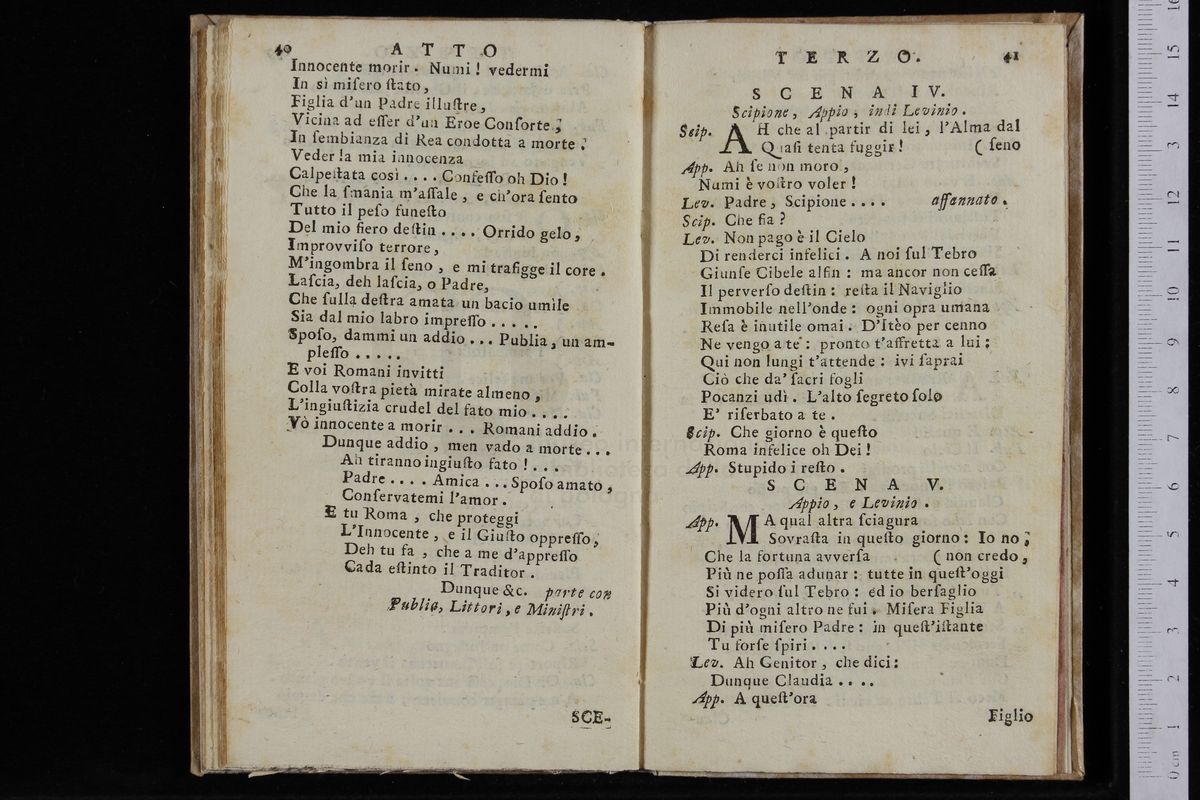 40 ATTO
Innocente morir. Numi! vedermi
In sì miſero ſtato,
Figlia d'un Padre illuſtre,
Vicina ad eſſer d'un Eroe Conſorte;
In ſembianza di Rea condotta a morte;
Veder la mia innocenza
Calpeſtata così .... Confeſſo oh Dio!
Che la ſmania m'aſſale, e ch'ora ſento
Tutto il peſo funeſto
Del mio fiero deſtin .... Orrido gelo,
Improvviſo terrore,
M'ingombra il ſeno, e mi trafigge il core.
Laſcia, deh laſcia, o Padre,
Che ſulla deſtra amata un bacio umile
Sia dal mio labro impreſſo .....
Spoſo, dammi un addio ... Publia, un am-
pleſſo .....
E voi Romani invitti
Colla voſtra pietà mirate almeno,
L'ingiuſtizia crudel del fato mio ....
Vò innocente a morir ... Romani addio.
Dunque addio, men vado a morte ...
Ah tiranno ingiuſto fato! ...
Padre .... Amica ... Spoſo amato,
Conſervatemi l'amor.
E tu Roma, che proteggi
L'Innocente, e il Giuſto oppreſſo,
Deh tu fa, che a me d'appreſſo
Cada eſtinto il Traditor.
Dunque &c. parte con
Publia, Littori, e Miniſtri.
SCE-
TERZO. 41
SCENA IV.
Scipione, Appio, indi Levinio.
Scip. AH che al partir di lei, l'Alma dal
Quaſi tenta fuggir! (ſeno
App. Ah ſe non moro,
Numi è voſtro voler!
Lev. Padre, Scipione .... affannato.
Scip. Che fia?
Lev. Non pago è il Cielo
Di renderci infelici. A noi ſul Tebro
Giunſe Cibele alfin: ma ancor non ceſſa
Il perverſo deſtin: reſta il Naviglio
Immobile nell'onde: ogni opra umana
Reſa è inutile omai. D'Itèo per cenno
Ne vengo a te: pronto t'affretta a lui;
Qui non lungi t'attende: ivi ſaprai
Ciò che da' ſacri fogli
Pocanzi udì. L'alto ſegreto ſolo
E' riſerbato a te.
Scip. Che giorno è queſto
Roma infelice oh Dei!
App. Stupido i reſto.
SCENA V.
Appio, e Levinio.
App. MA qual altra ſciagura
Sovraſta in queſto giorno: Io no;
Che la fortuna avverſa (non credo,
Più ne poſſa adunar: tutte in queſt'oggi
Si videro ſul Tebro: ed io berſaglio
Più d'ogni altro ne fui. Miſera Figlia
Di più miſero Padre: in queſt'iſtante
Tu forſe ſpiri ....
Lev. Ah Genitor, che dici:
Dunque Claudia ....
App. A queſt'ora
Figlio